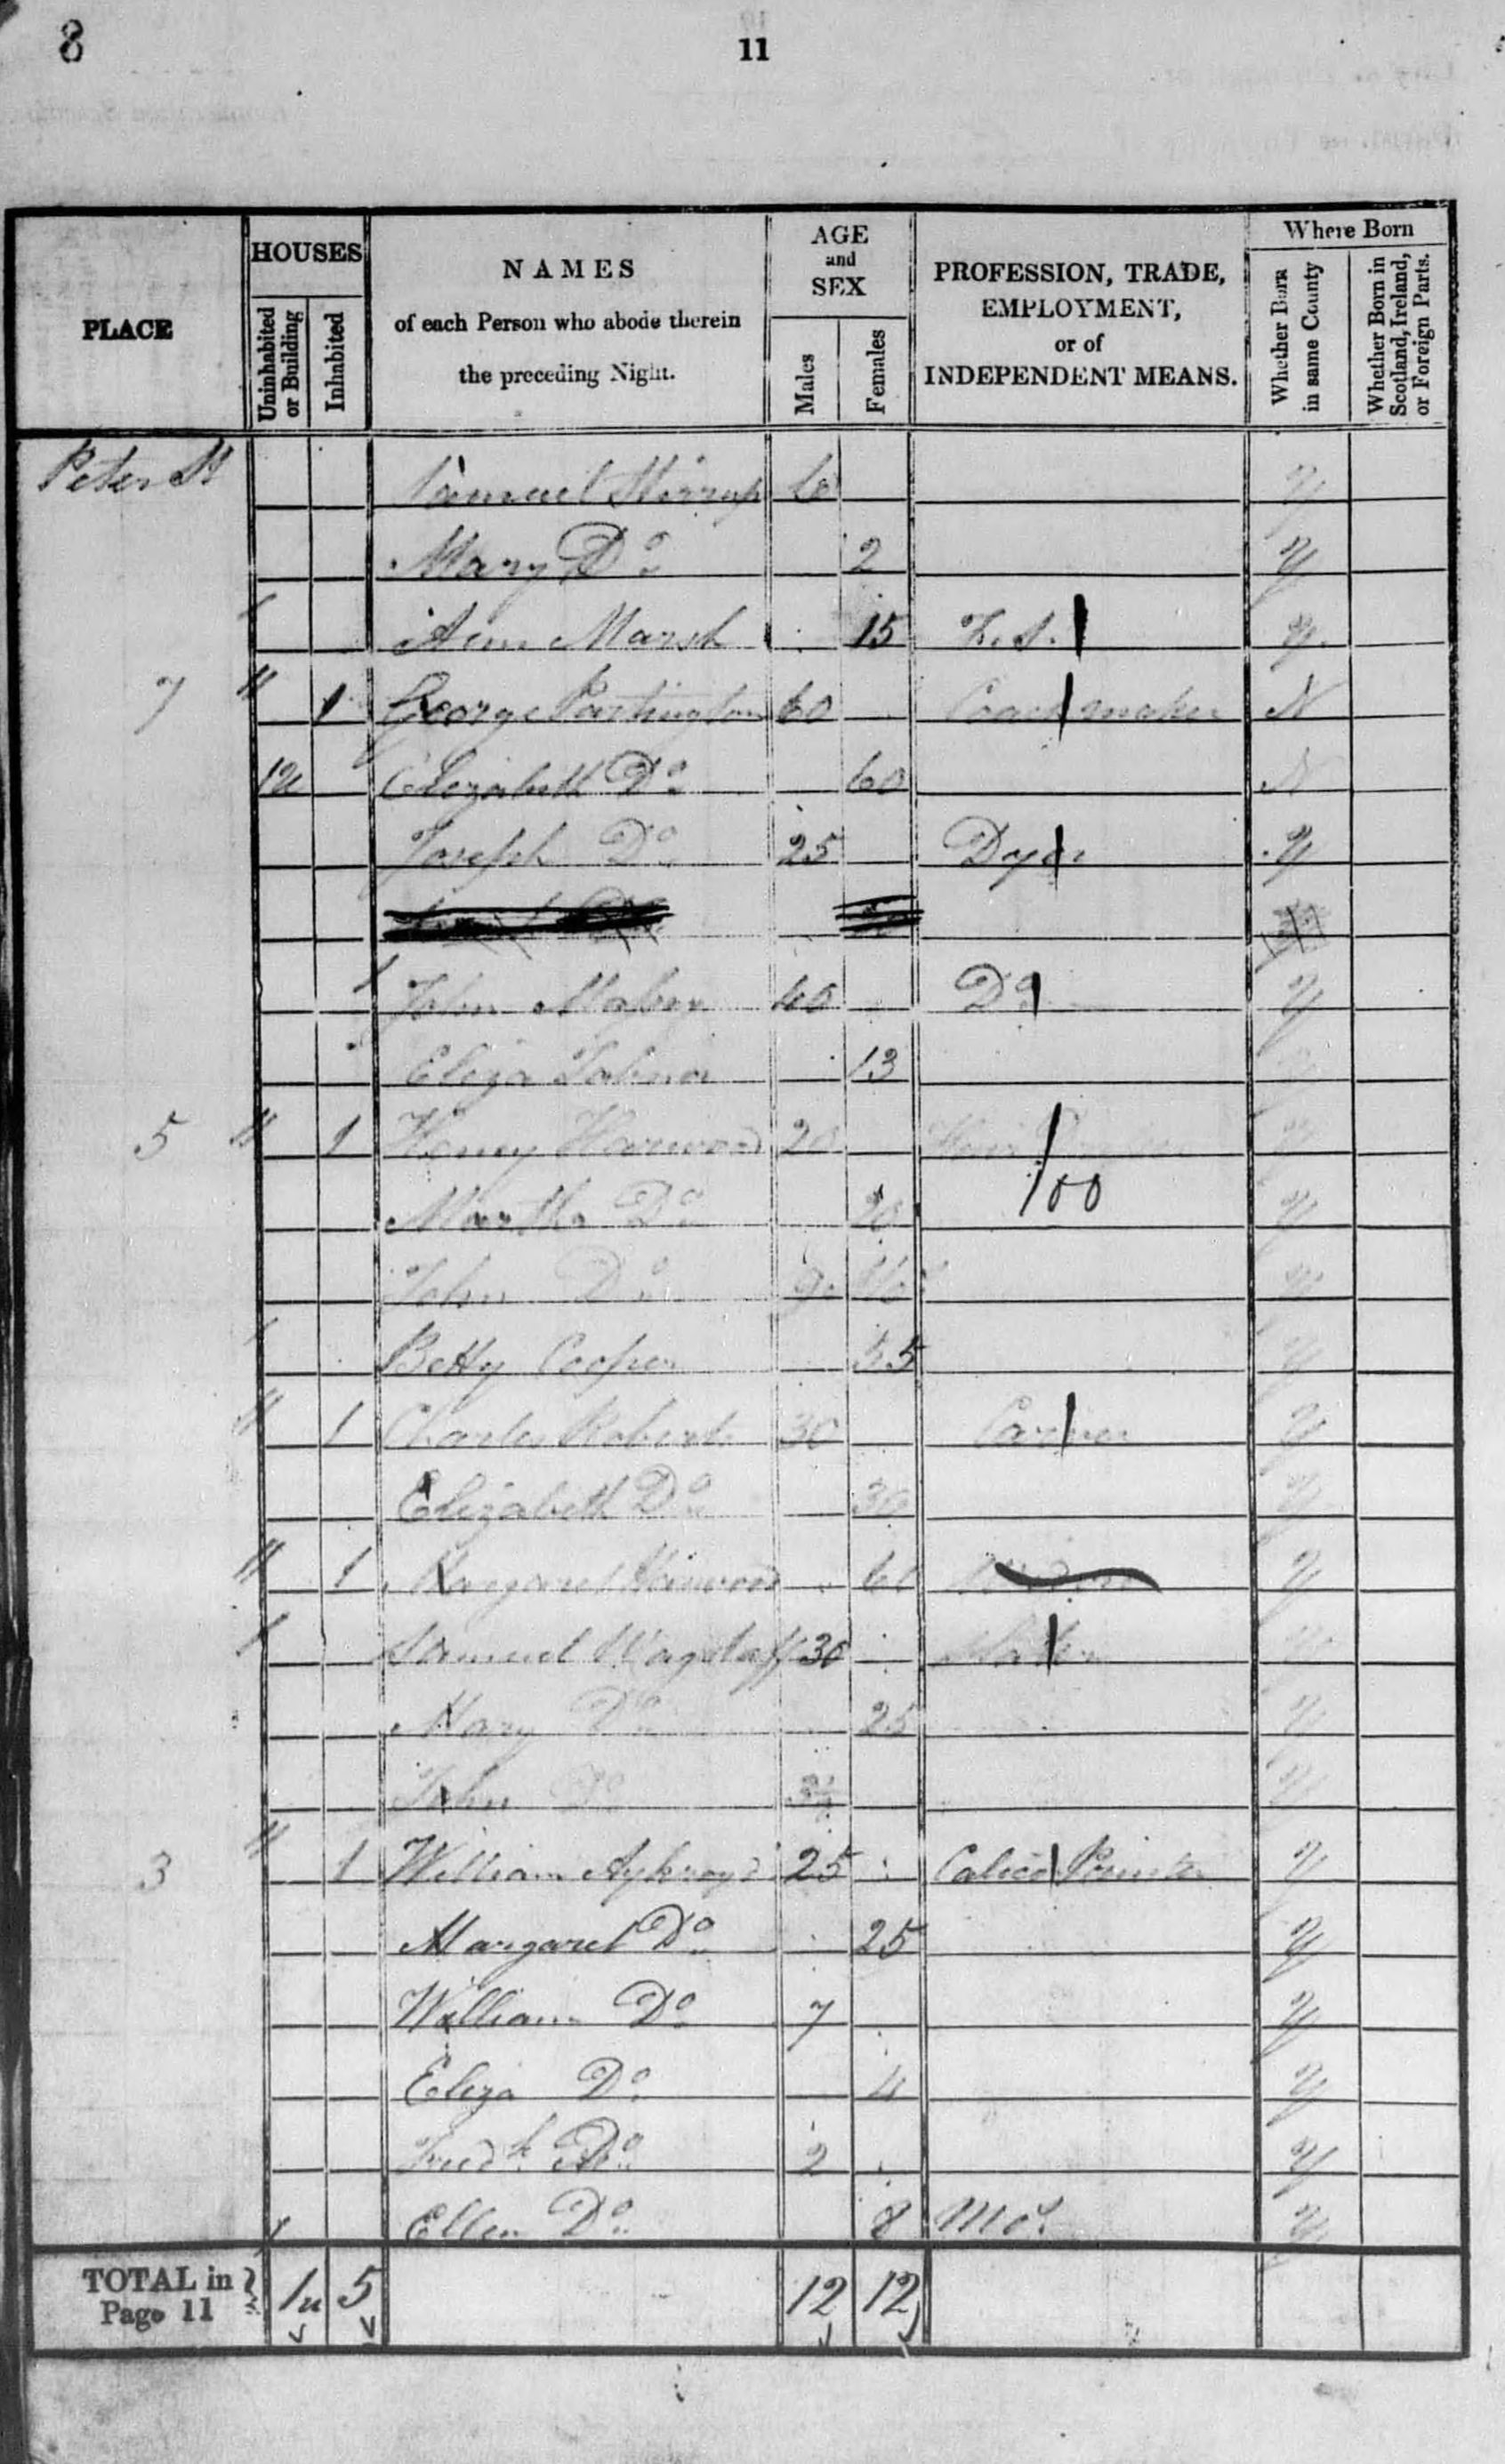 8
11
PLACE
HOUSES
Uninhabited or Building
Inhabited
NAMES
of each Person who abode therein
the preceding Night.
AGE
and
SEX
Males
Females
PROFESSION, TRADE,
EMPLOYMENT,
or of
INDEPENDENT MEANS.
Where Born
Whether Born in same County
Whether Born in Scotland, Ireland, or Foreign Parts.
Peter St Samuel Stirrup y
Mary Do 2 y
Ann Marsh 15 F.S. y
7 1 George Partington 60 Coach maker N
1u Elizabeth Do 60 N
Joseph Do 25 Dyer y
John 40 Do y
Eliza 13
5 1 Henry Harwood 20 y
100
Martha Do 20 y
John Do 9 y
Betty Cooper 55 y
1 Charles Roberts 30 y
Elizabeth Do 30 y
1 Margaret Harwood y
Samuel Wagstaff 30 y
Mary Do 25 y
John Do y
3 1 William Aykroyd 25 Calico Printer y
Margaret Do 25 y
William Do 7 y
Eliza Do 4 y
Fredk Do 2 y
Ellen Do 8 Mos. y
TOTAL in Page 11 1u 5 12 12